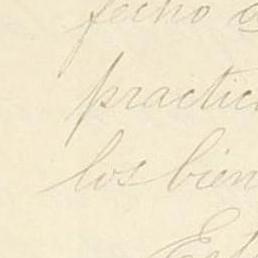 fecho
practic
los bien
Est